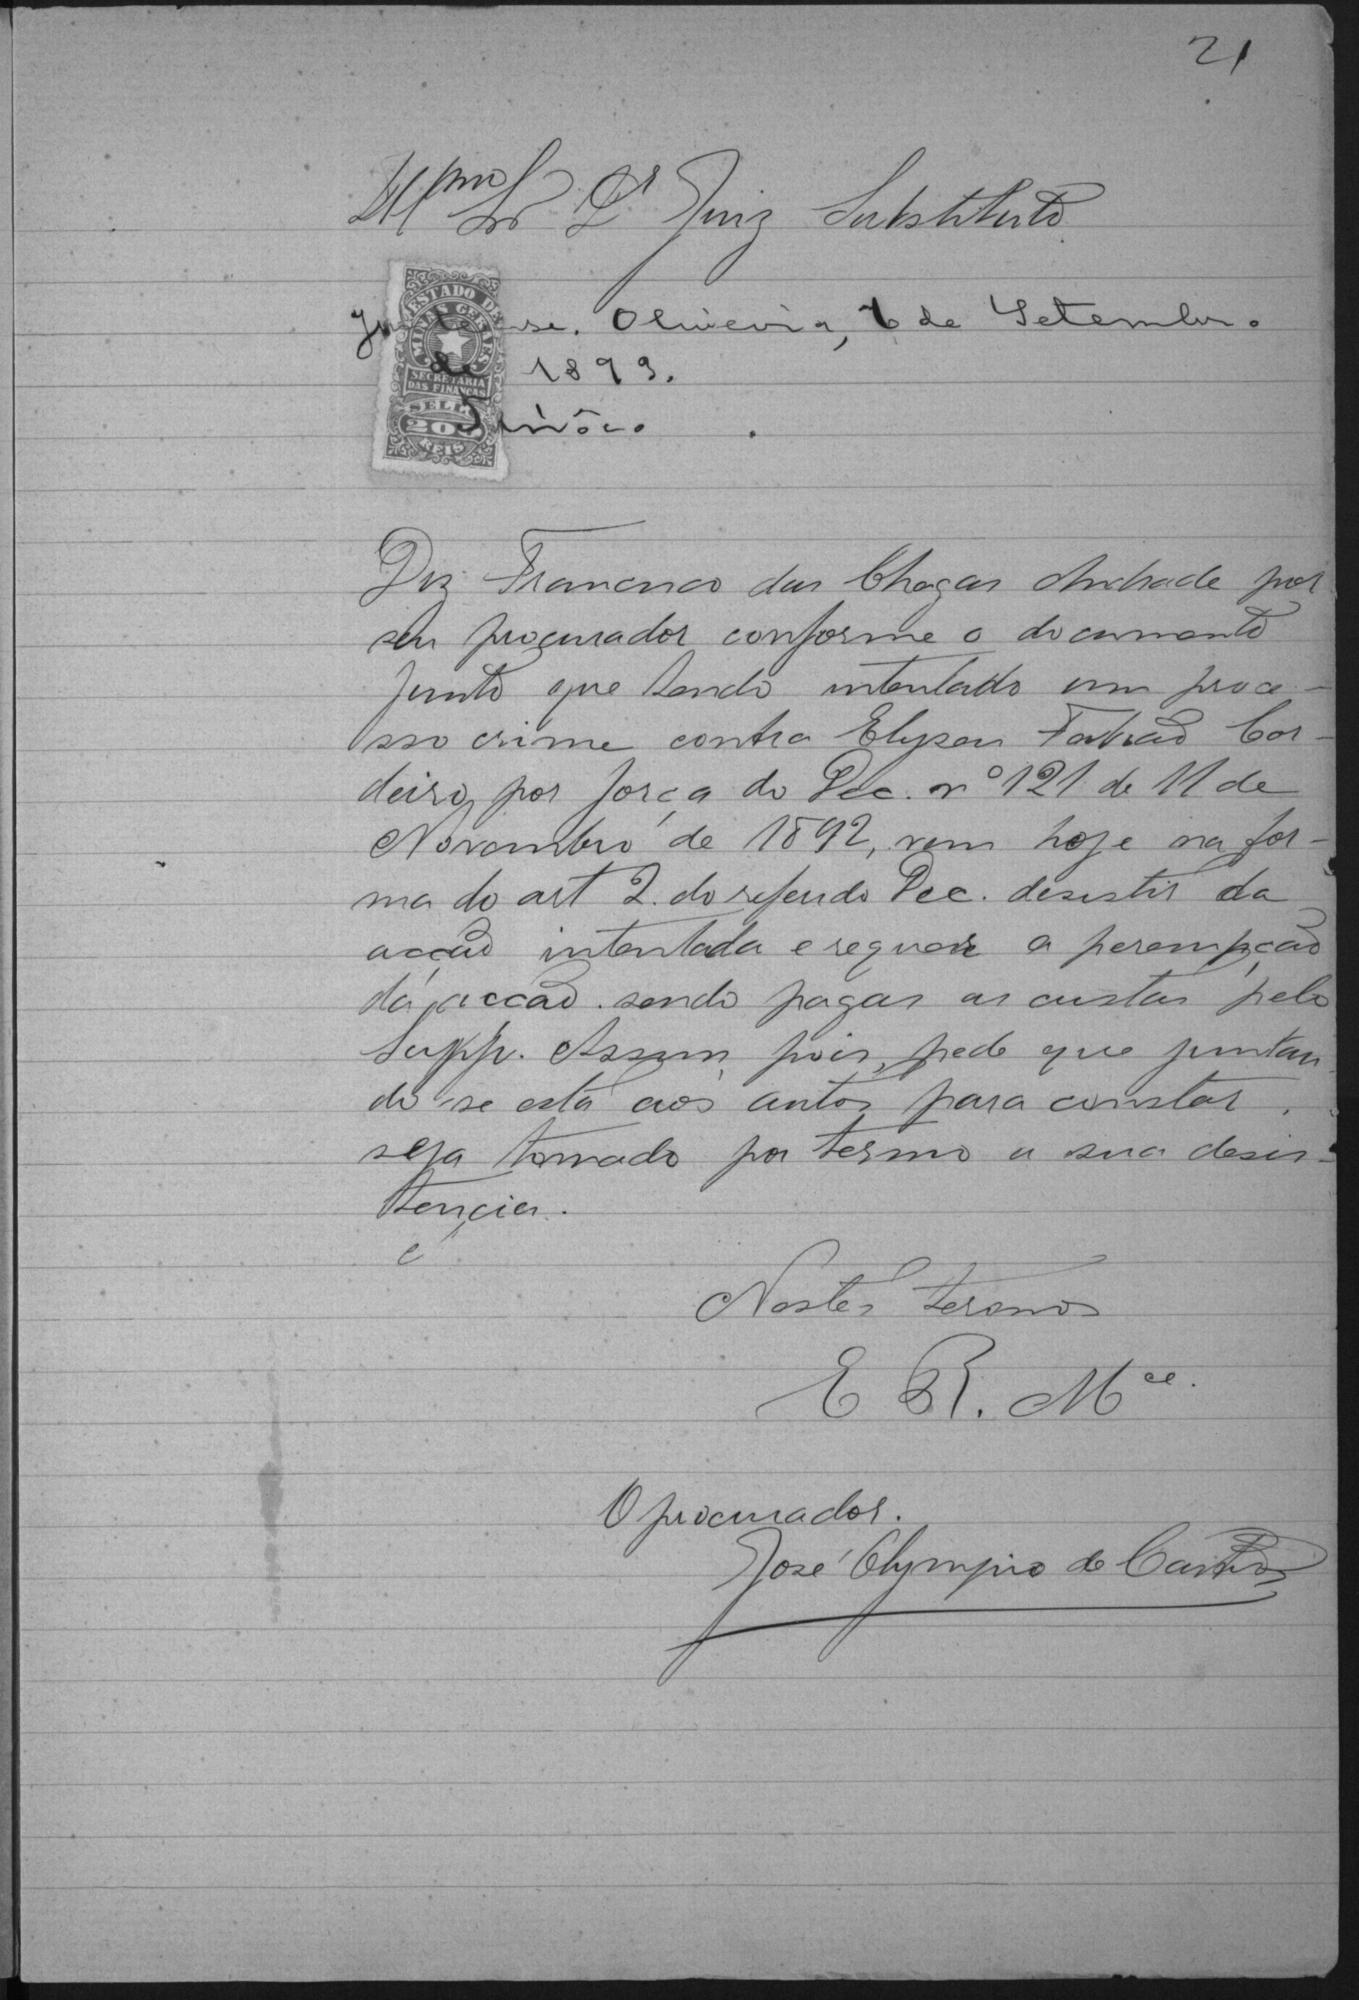 21
Illmo Sr Dr Juiz Substituto
ESTADO DE
MINAS GERAES
SECRETARIA
DAS FINANÇAS
SELLO
200
REIS
se. Oliveira, 6 de Setembro
de 1893.
Diz Francisco das Chagas Andrade por
seu procurador conforme o documento
junto que tendo intentado um proce-
sso crime contra Elyseu Cor-
deiro, por força do Dec. nº 121 de 11 de
Novembro de 1892, vem hoje na for-
ma do art 2. do referido Dec. desistir da
acção intentada e requer a perempção
da acção. sendo pagas as custas pelo
Supp. Assim, pois, pede que juntan
do-se esta aos autos para constar,
seja tomado por termo a sua desis-
tencia.
Nestes termos
E R. Mce.
O procurador.
José Olympio de Castro